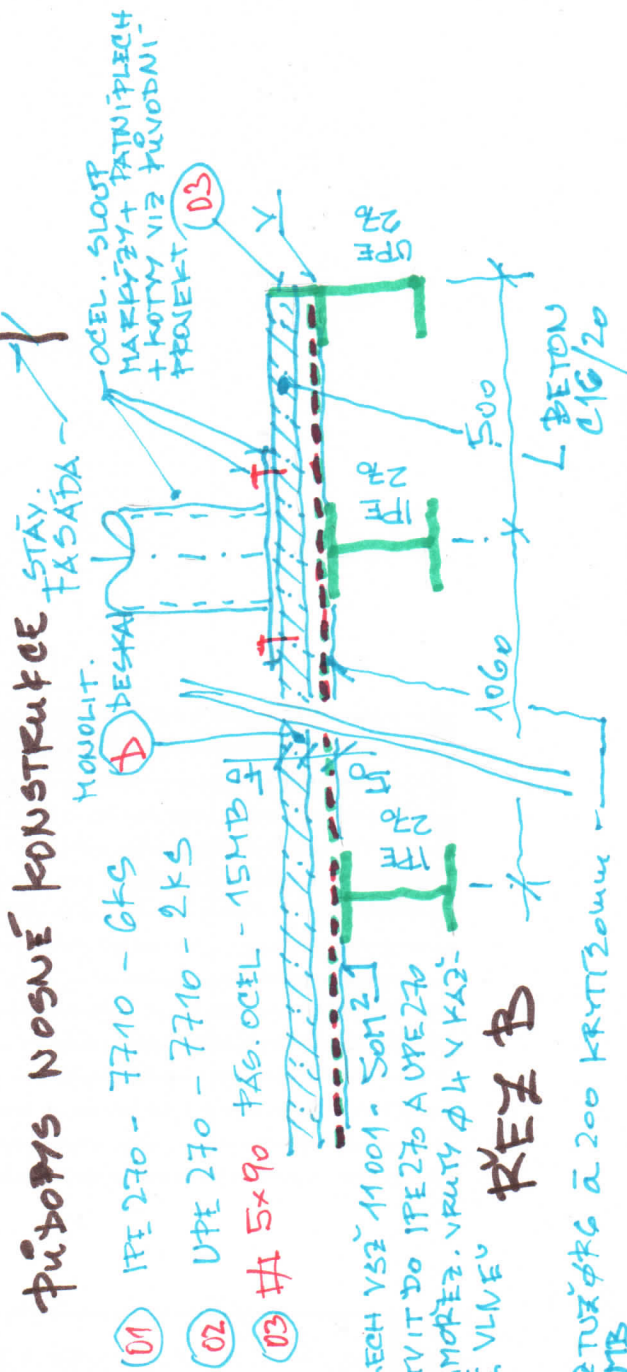 PŮDORYS NOSNÉ KONSTRUKCE
01 IPE 270 - 7710 - 6KS
02 UPE 270 - 7710 - 2KS
03 5×90 PÁS. OCEL - 15MB
MONOLIT.
D DESKA
STÁV.
FASÁDA
OCEL. SLOUP
MARKÝZY + PATNÍ PLECH
+ KOTVY VIZ PŮVODNÍ
PROJEKT
03
IPE
270
IPE
270
UPE
270
1060
500
BETON
C16/20
ECH VSŽ 11001 - 50M²
VIT DO IPE 270 A UPE 270
MOŘEZ. VRUTY Ø 4 V KAŽ-
VLNĚ
ŘEZ B
ZTUŽ ØR6 Á 200 KRYTÍ 20mm
MB